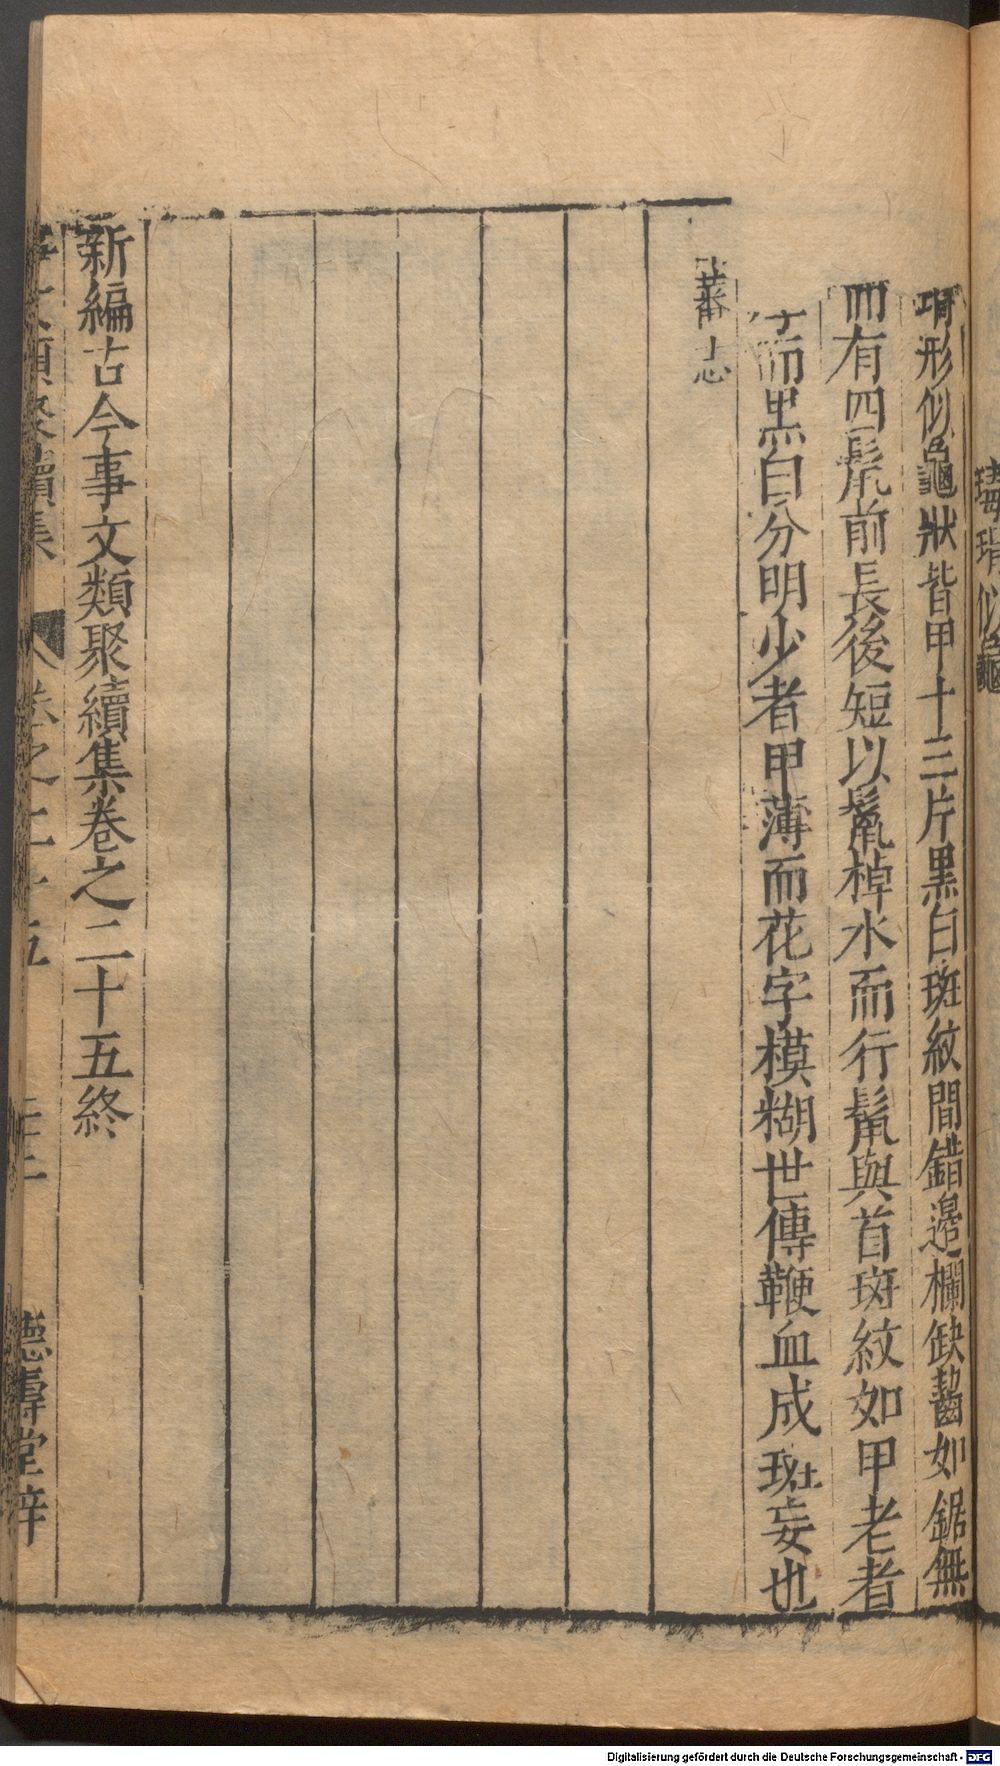 瑇瑁似龜
瑁形似龜狀背甲十三片黑白斑紋間錯邊欄缺齧如鋸無
而有四鬛前長後短以鬛棹水而行鬛與首斑紋如甲老者
而黑白分明少者甲薄而花字模糊世傳鞭血成斑妄也
蕃志
新編古今事文類聚續集卷之二十五終
事文類聚續集 卷之二十五 德壽堂梓
Digitalisierung gefördert durch die Deutsche Forschungsgemeinschaft - DFG